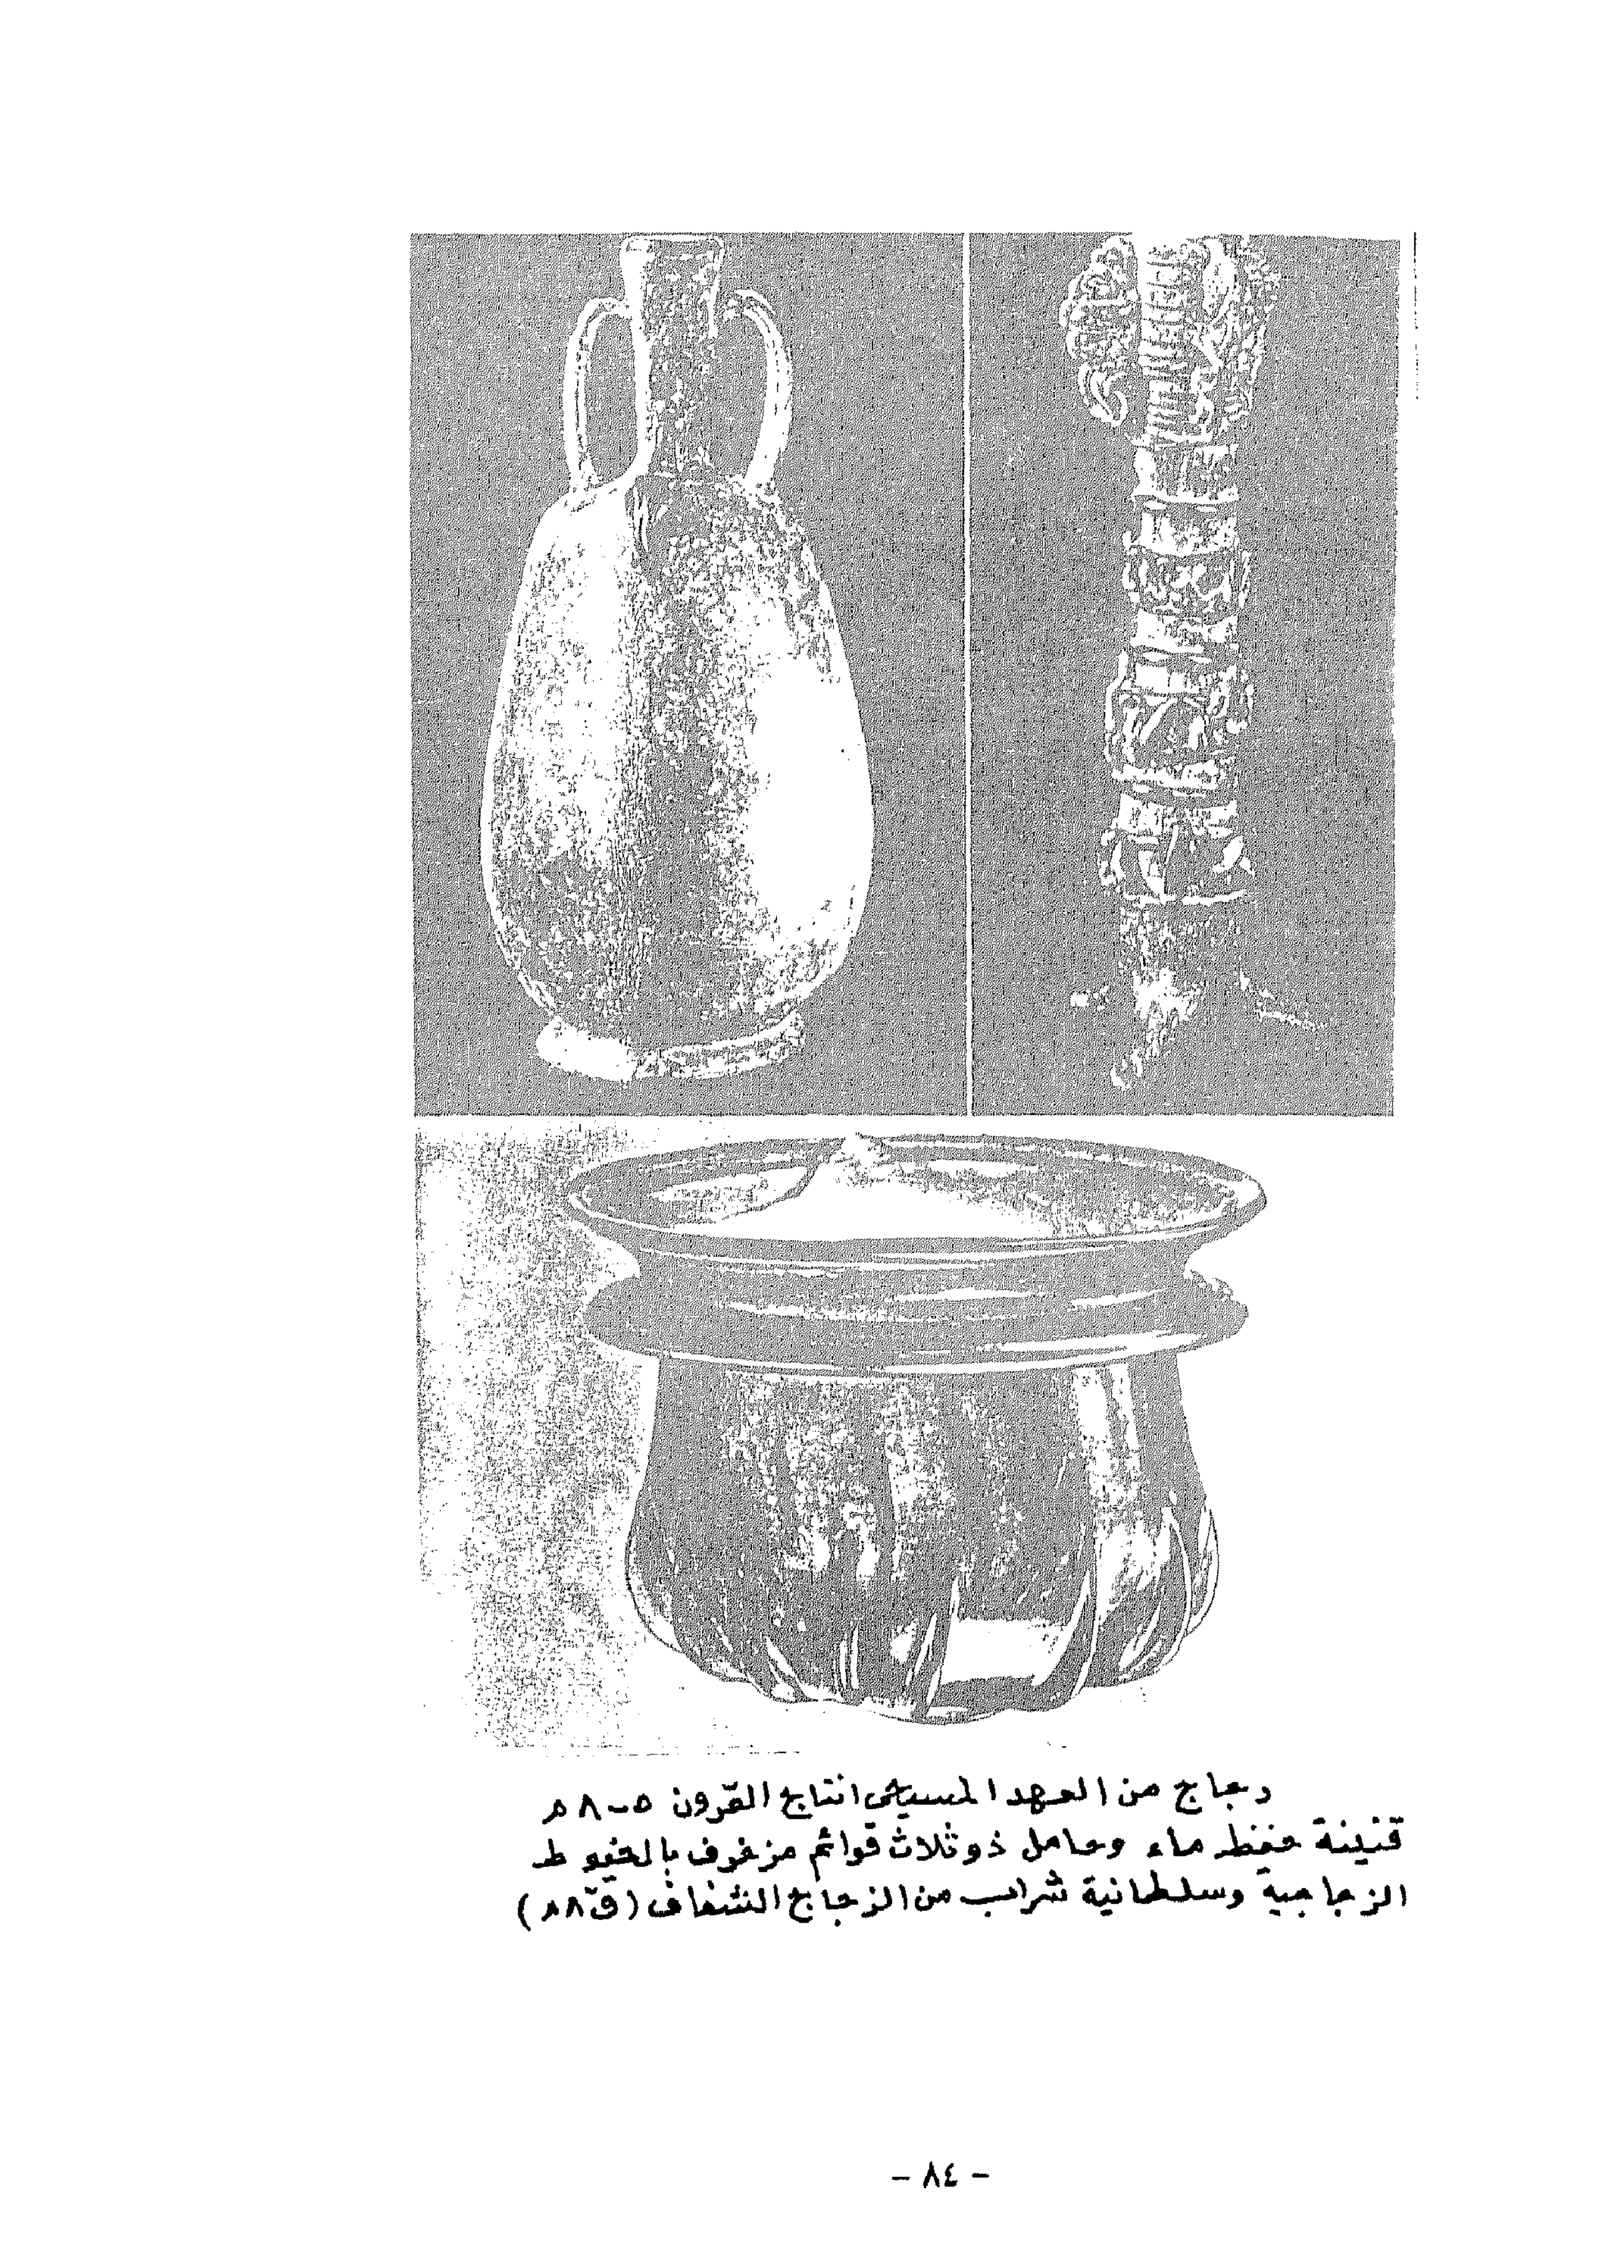 زجاج من العهد المسيحى انتاج القرون ٥-٨م
قنينة حفظ ماء وحامل ذو ثلاث قوائم مزخرف بالخيوط
الزجاجية وسلطانية شراب من الزجاج الشفاف (ق٨م)
- ٨٤ -